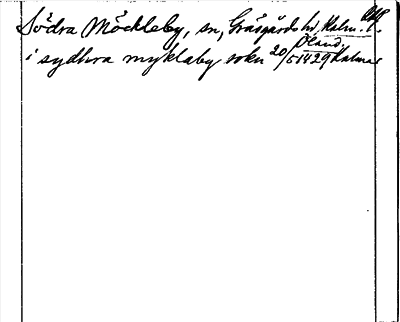 Södra Möckleby, sn, Gräsgårds hd, Kalm. l.
Öland.
i sydhra myklaby sokn 20/5 1429 Kalmar